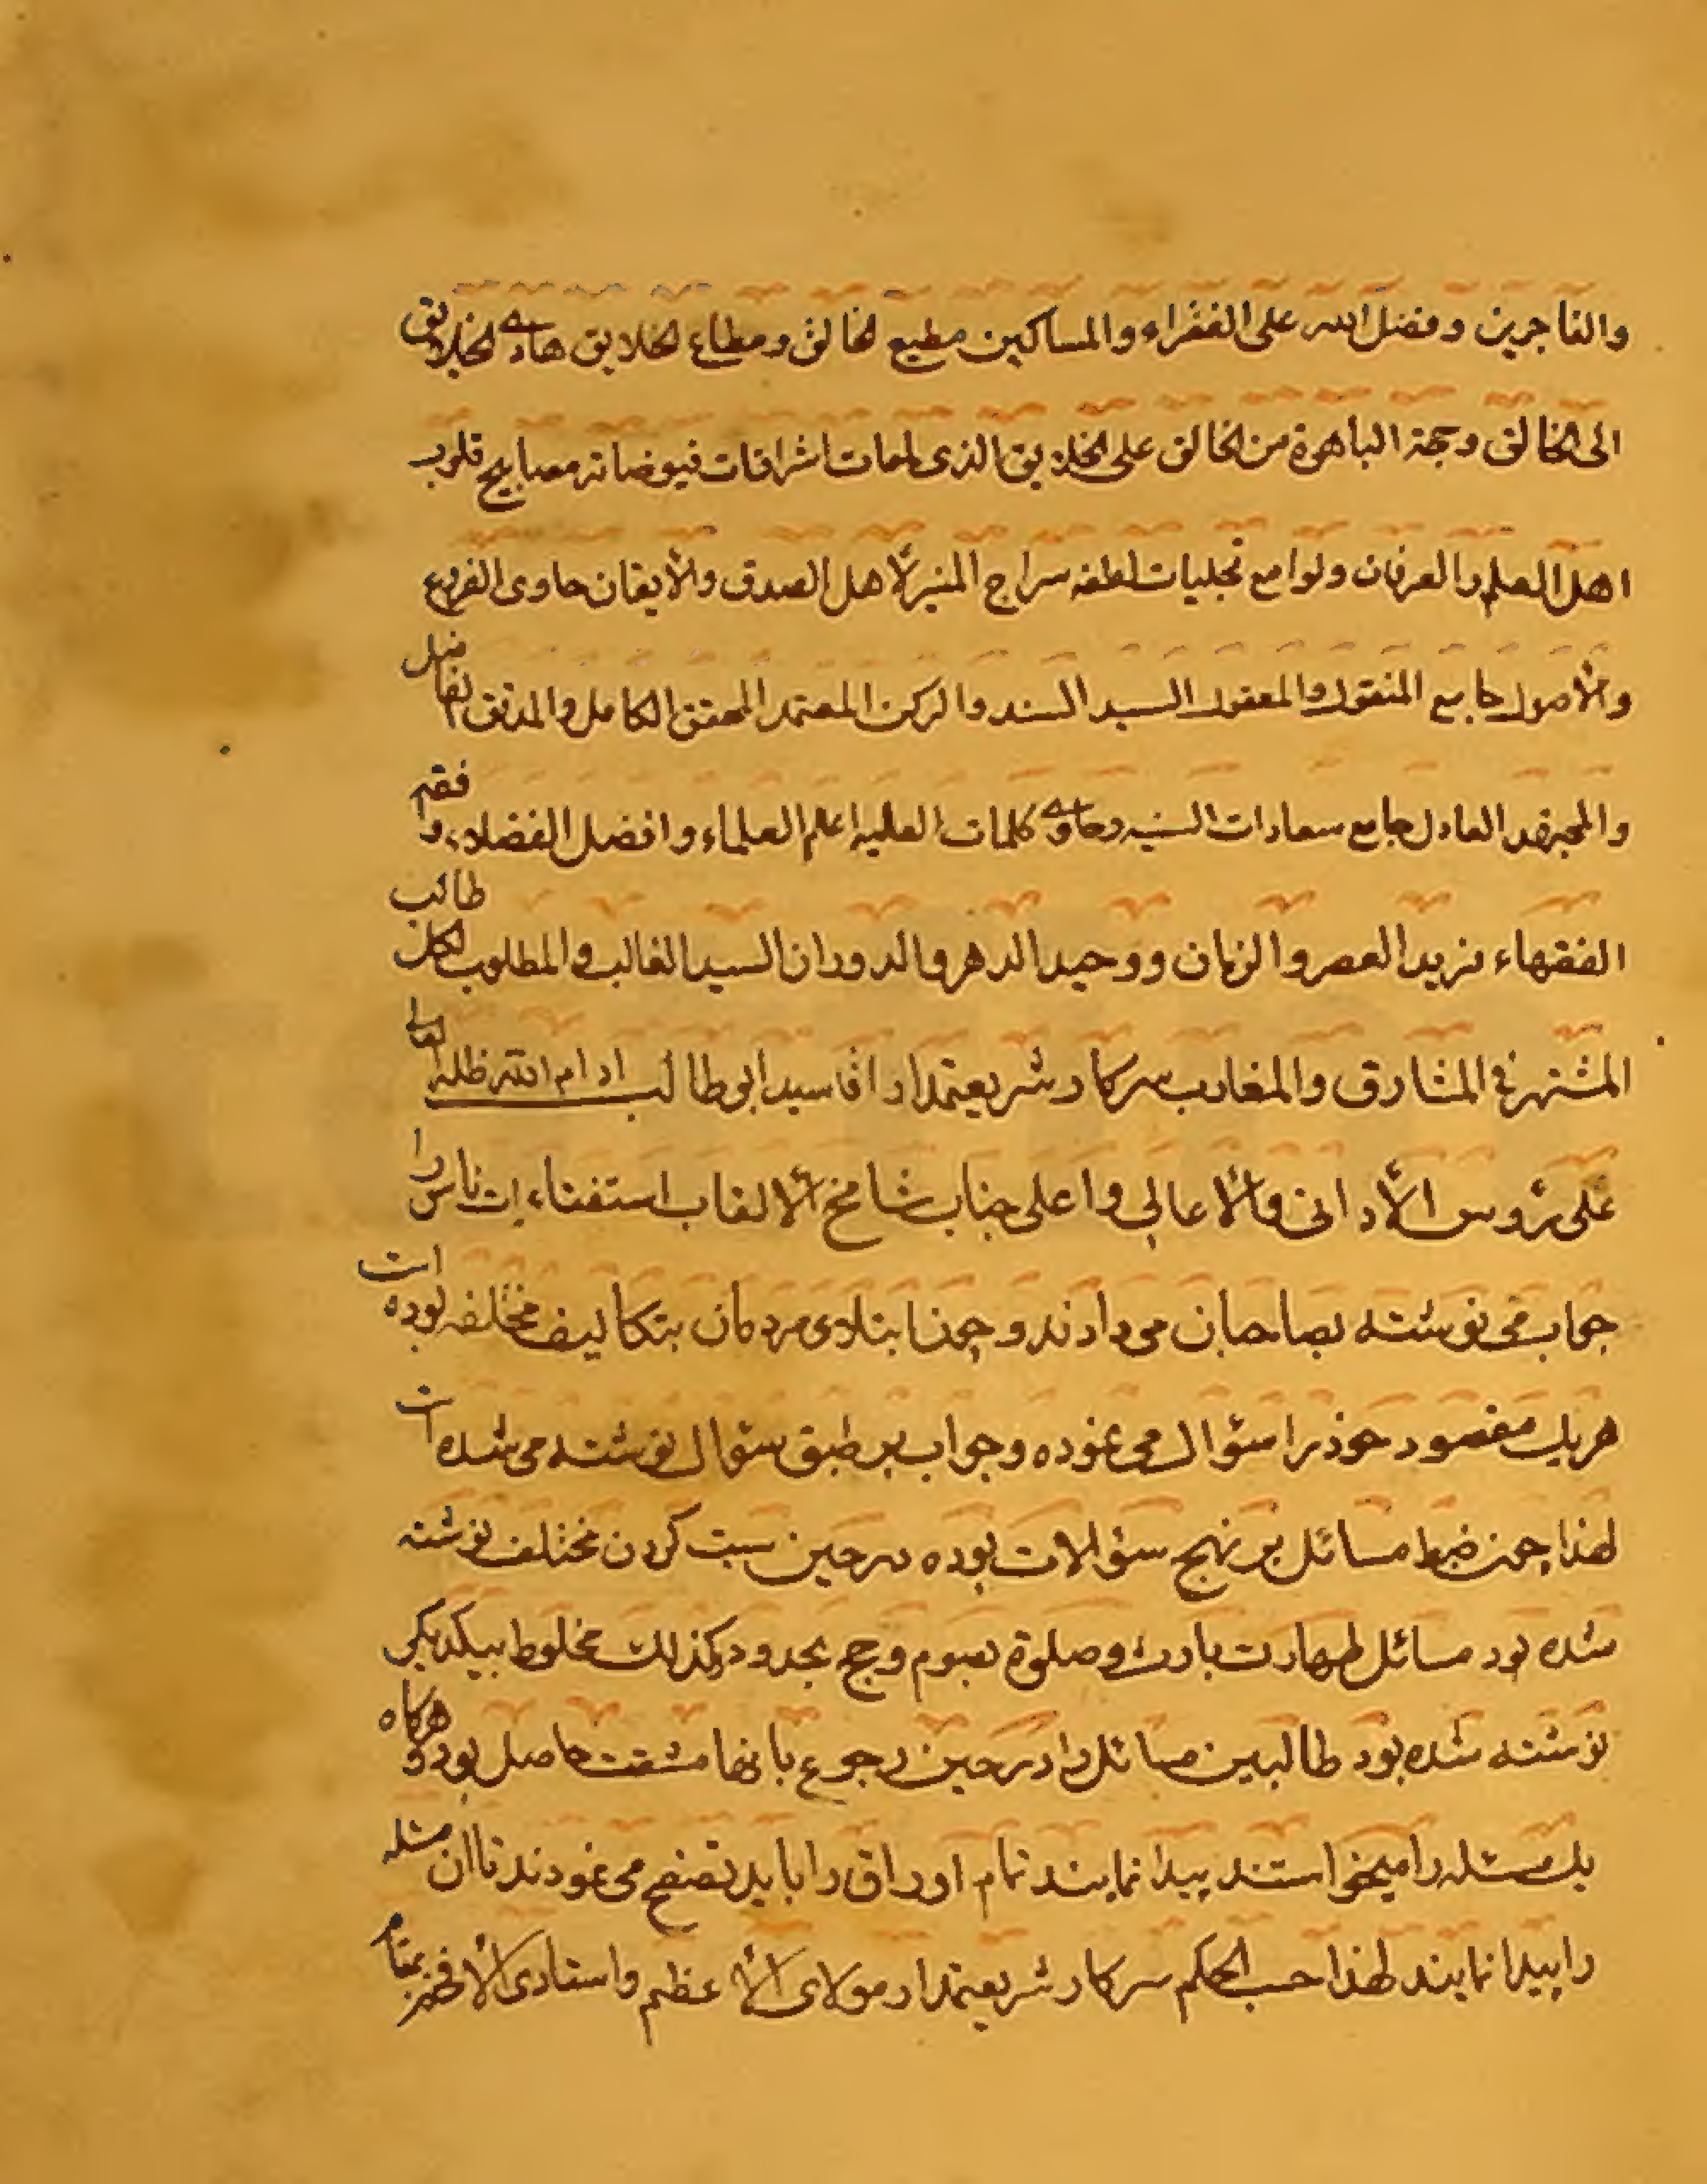 والفاجرین و فضل الله علی الفقراء والمساکین مطیع الخالق و مطاع الخلایق هادی الخلایق
الی الخالق و حجة الباهرة من الخالق علی الخلایق الذی لمعات اشراقات فیوضاته مصابیح قلوب
اهل العلم و العرفان و لوامع تجلیات لطفه سراج المنیر لاهل الصدق والأیقان حاوی الفروع
والأصول جامع المنقول والمعقول السید السند والرکن المعتمد المحقق الکامل والمدقق الفاضل
والمجتهد العادل جامع سعادات السنیه و حاوی کلمات العلیه اعلم العلماء و افضل الفضلاء و افقه
الفقهاء فرید العصر و الزمان و وحید الدهر والدوران السید الغالب والمطلوب لکل طالب
المشتهر فی المشارق والمغارب سرکار شریعتمدار اقا سید ابوطالب ادام الله ظله العالی
علی رؤوس الأدانی والأعالی و اعلی جناب شامخ الألقاب استفتاءات ناس را
جواب می نوشته بصاحبان می دادند و چون ابتلای مردمان بتکالیف مختلفه بوده است
هریک مقصود خود را سؤال می نموده و جواب بر طبق سؤال نوشته می شده است
لهذا چون ضبط مسائل بر نهج سؤالات بوده در حین سبت کردن مختلف نوشته
شده بود مسائل طهارت بارث و صلوة بصوم و حج بحدود و کذلک مخلوط بیکدیگر
نوشته شده بود طالبین مسائل را در حین رجوع بانها مشقت حاصل بود و هرکاه
یک مسئله را میخواستند پیدا نمایند تمام اوراق را باید تصفح می نمودند تا ان مسئله
را پیدا نمایند لهذا حسب الحکم سرکار شریعتمدار مولای الأعظم و استادی الأفخم بمقام